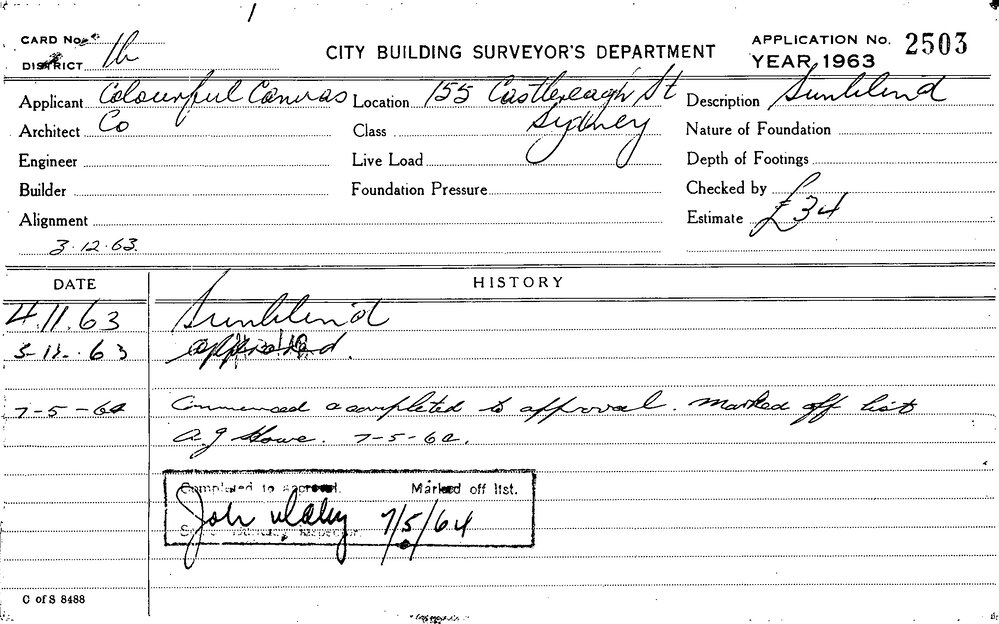 CARD No.
DISTRICT 1b
CITY BUILDING SURVEYOR'S DEPARTMENT
APPLICATION No. 2503
YEAR, 1963
Applicant Colourful Canvas
Co
Location 155 Castlereagh St
Sydney
Description Sunblind
Architect
Class
Nature of Foundation
Engineer
Live Load
Depth of Footings
Builder
Foundation Pressure
Checked by
Alignment
Estimate £34
3.12.63.
DATE HISTORY
4.11.63 Sunblind
approved.
7-5-64 Commenced & completed to approval. Marked off list
7-5-64.
Completed to approval. Marked off list.
7/5/64
C of S 8488